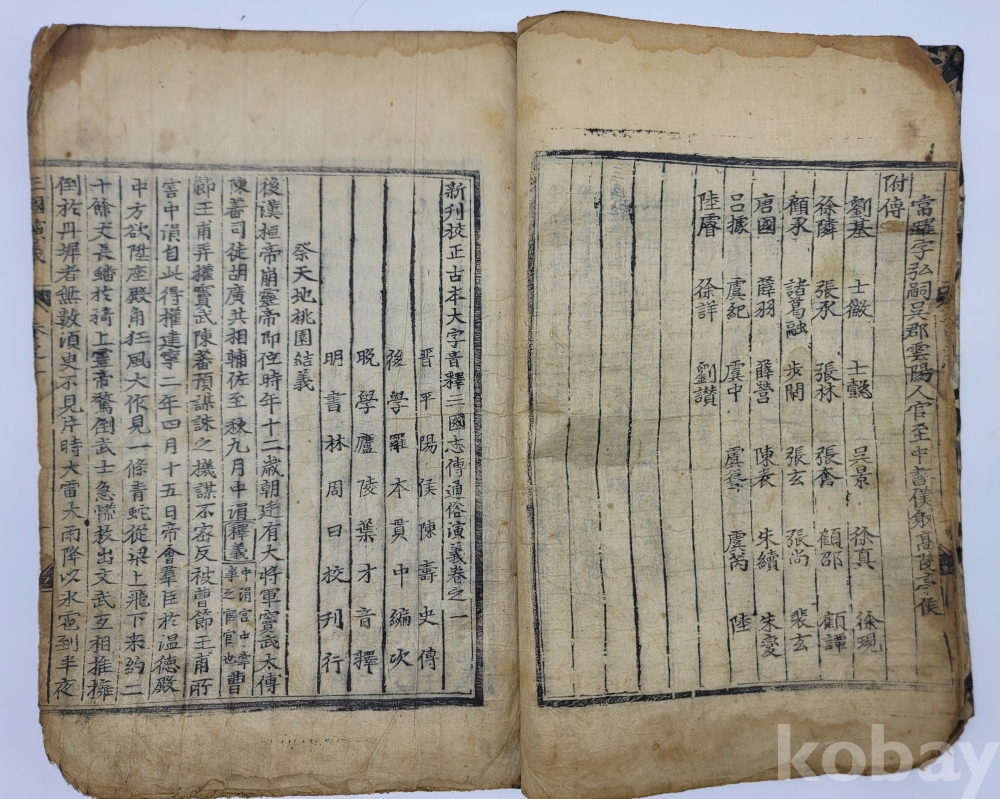 富羅字弘嗣吳郡雲陽人官至中書僕射高陵亭侯
附傳
劉基 士徽 士懿 吳景 徐真 徐琨
徐隣 張承 張林 張奮 顧邵 顧譚
顧承 諸葛融 步闡 張玄 張尚 裴玄
唐國 薛羽 薛營 陳表 朱續 朱変
呂據 虞紀 虞中 虞 虞芮 陸
陸儁 徐詳 劉讃
新刊校正古本大字音釋三國志傳通俗演義卷之一
晋平陽侯陳壽史傳
後學羅本貫中編次
晚學廬陵葉才音釋
明書林周曰校刊行
祭天地桃園結義
後漢桓帝崩靈帝即位時年十二歲朝廷有大將軍竇武太傅
陳蕃司徒胡廣共相輔佐至秋九月中涓釋義中涓宮中掌事之宦官也曹
節王甫弄權竇武陳蕃預謀誅之機謀不密反被曹節王甫所
害中涓自此得權建寧二年四月十五日帝會羣臣於温德殿
中方欲陞座殿角狂風大作見一條青蛇從梁上飛下來約二
十餘丈長蟠於椅上靈帝驚倒武士急慌救出文武互相推擁
倒於丹墀者無數須臾不見片時大雷大雨降以氷雹到半夜
三國